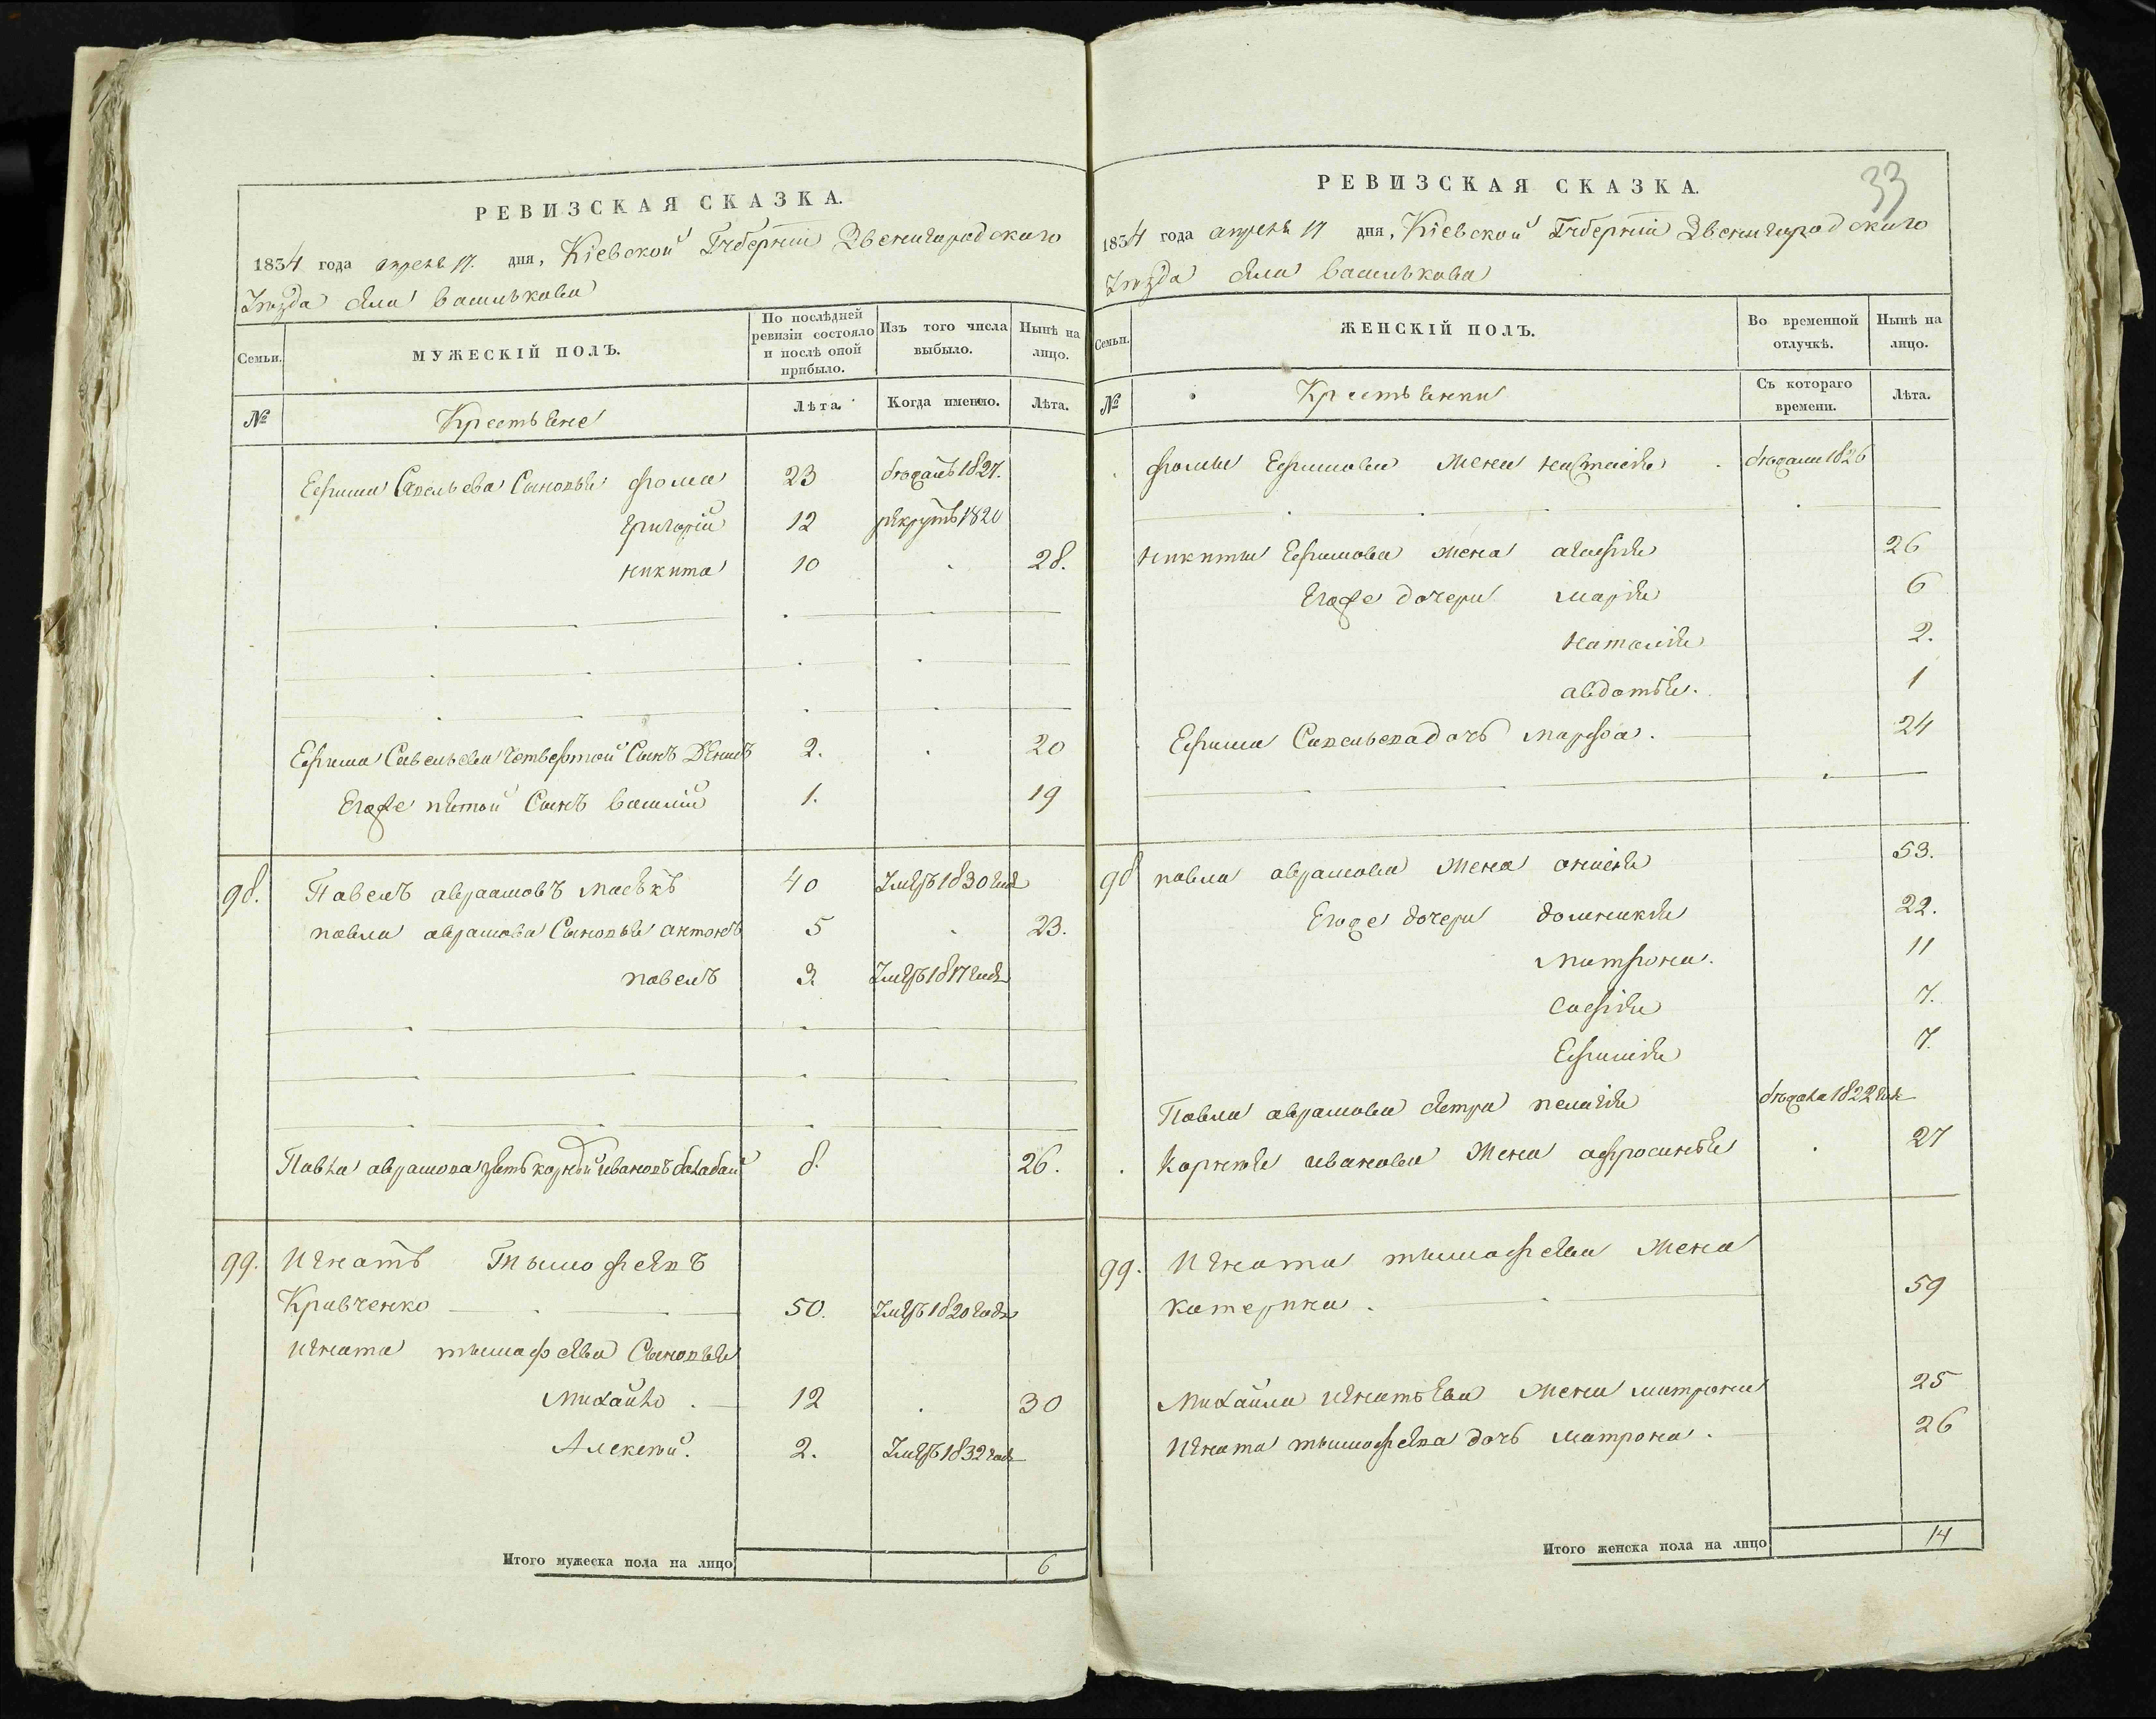 РЕВИЗСКАЯ СКАЗКА.
1834 года апреля 17. дня, Кіевской Губерніи Звенигородского
Уезда села Василькова
Семьи.
МУЖЕСКІЙ ПОЛЪ.
По послѣдней ревизіи состояло и послѣ оной прибыло.
Изъ того числа выбыло.
Нынѣ на лицо.
№
Крестьяне
Лѣта.
Когда именно.
Лѣта.
Ефима Савельева Сыновья фома 23 1827.
григорій 12 рекрутъ 1820
никита 10 28.
Ефима Савельева четвертой Сынъ Денисъ 2. 20
Егоже пятой Сынъ василій 1. 19
98. Павелъ авраамовъ 40 Умеръ 1830 года
павла аврамова Сыновья антонъ 5 23.
павелъ 3. Умеръ 1817 года
Павла аврамова зять корній ивановъ балабай 8. 26.
99. Игнатъ Тымофеевъ
Кравченко 50. Умеръ 1820 года
игната тымофеева Сыновья
Михайло 12 30
Алексей. 2. Умеръ 1832 года
Итого мужеска пола на лицо 6
33
РЕВИЗСКАЯ СКАЗКА.
1834 года апреля 17 дня, Кіевской Губерніи Звенигородского
Уезда села василькова
Семьи.
ЖЕНСКІЙ ПОЛЪ.
Во временной отлучкѣ.
Нынѣ на лицо.
№
Крестьянки
Съ котораго времени.
Лѣта.
фомы Ефимова жена настасія 1826
никиты Ефимова жена агафія 26
Егоже дочери марія 6
наталія 2.
авдотья. 1
Ефима Савельева дочь марфа. 24
98 павла аврамова жена анисія 53.
Егоже дочери доминикія 22.
матрона. 11
софія 7.
Ефимія 7.
Павла аврамова сестра пелагія 1822 года
Корнея иванова жена афросинья 27
99. Игната тымофеева жена
катерина. 59
Михайла игнатьева жена матрона 25
Игната тымофеева дочь матрона. 26
Итого женска пола на лицо 14